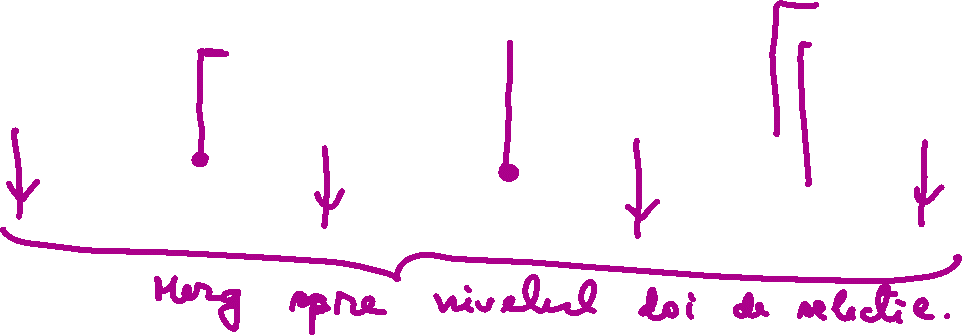 Merg spre nivelul doi de selectie.